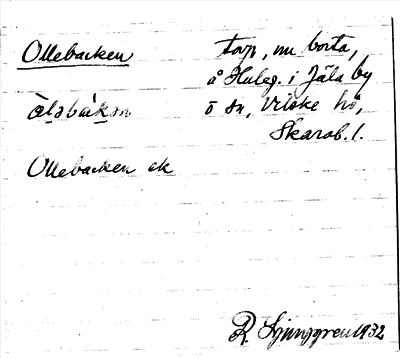 Ollebacken torp, nu borta,
å Huleg. i Jäla by
òləbàkən ō sn, Vilske hd,
Skarab. l.
Ollebacken ek
R. Ljunggren 1932